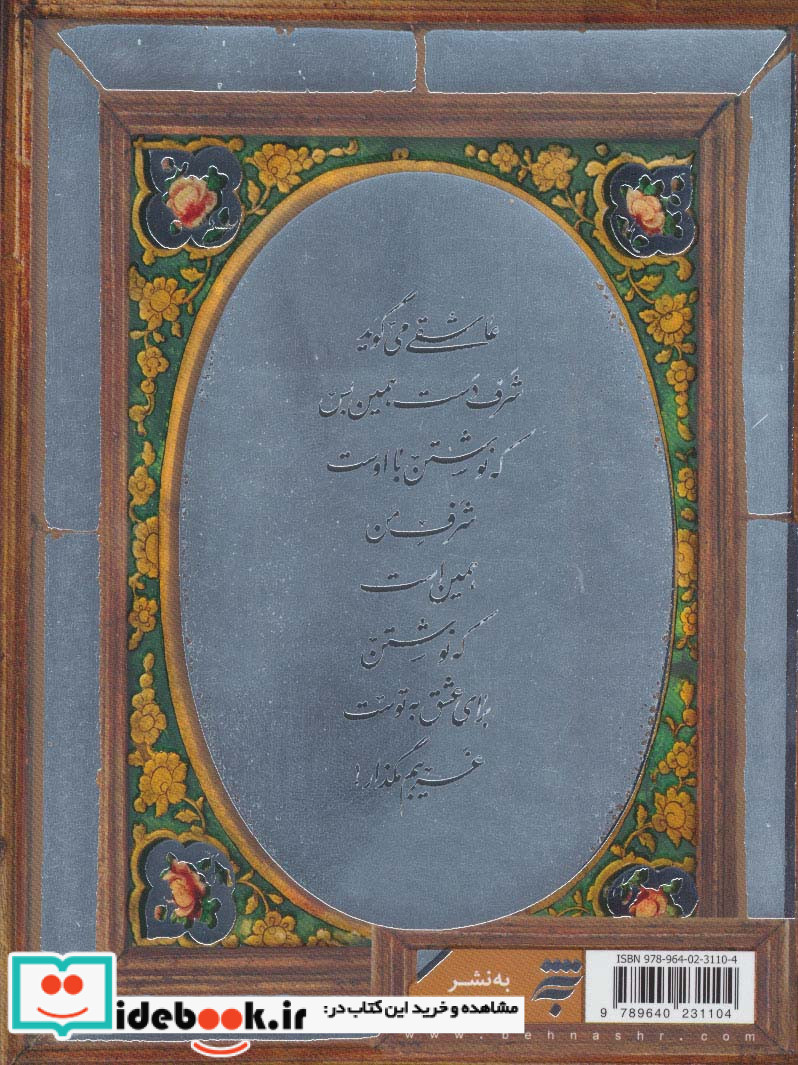 عاشقے می گوید
شرف دست همین بس
که نوشتن با اوست
شرفِ من
همین است
که نوشتن
برای عشق به توست
غریبم مگذار!
ISBN 978-964-02-3110-4
9 789640 231104
به‌نشر
www.behnashr.com
idebook.ir
مشاهده و خرید این کتاب در: